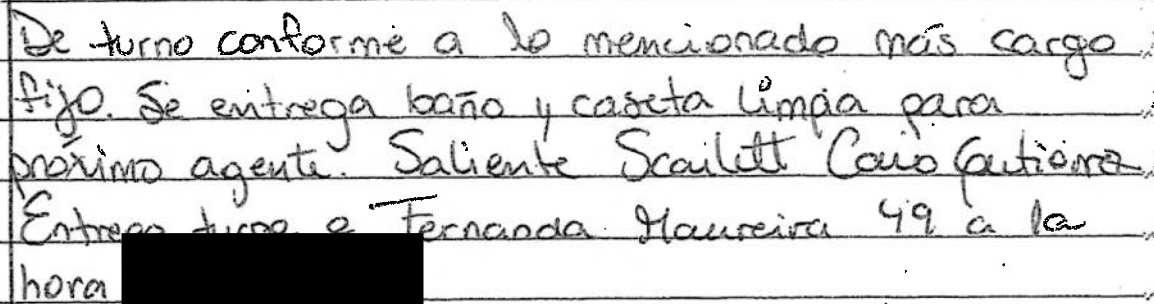 De turno conforme a lo mencionado más cargo
fijo. Se entrega baño y caseta limpia para
próximo agente. Saliente Scarlett Gutiérrez
Entrego turno a Fernanda Maureira 49 a la
hora